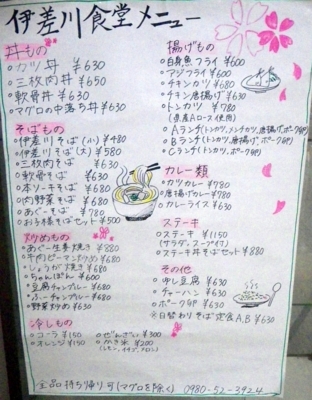 伊差川食堂メニュー
丼もの
○カツ丼 ¥630
○三枚肉丼 ¥650
○軟骨丼 ¥630
○マグロの中落ち丼 ¥630
そばもの
○伊差川そば(小) ¥480
○伊差川そば(大) ¥580
○三枚肉そば ¥630
○軟骨そば ¥630
○本ソーキそば ¥680
○肉野菜そば ¥680
○あぐーそば ¥780
○お子様そばセット ¥500
炒めもの
○あぐー生姜焼き ¥880
○牛肉ピーマン炒め ¥680
○しょうが焼き ¥680
○ちゃんぽん ¥600
○豆腐チャンプルー ¥680
○ふーチャンプルー ¥680
○野菜炒め ¥630
冷しもの
○コーラ ¥150
○オレンジ ¥150
○ぜんざい ¥300
○かき氷 ¥200
(レモン、イチゴ、メロン)
揚げもの
○白身魚フライ ¥600
○アジフライ ¥600
○チキンカツ ¥680
○チキン唐揚げ ¥630
○トンカツ ¥780
(県産Aロース使用)
○Aランチ(トンカツ、メンチカツ、唐揚げ、ポーク、卵)
○Bランチ(トンカツ、唐揚げ、ポーク、卵)
○Cランチ(トンカツ、ポーク、卵)
カレー類
○カツカレー ¥780
○唐揚げカレー ¥780
○カレーライス ¥630
ステーキ
○ステーキ ¥1150
(サラダ、スープ、ライス)
○ステーキ丼そばセット ¥880
その他
○ゆし豆腐 ¥630
○チャーハン ¥630
○ポーク卵 ¥630
※日替わりそば定食A,B ¥630
全品持ち帰り可(マグロを除く) 0980-52-3924